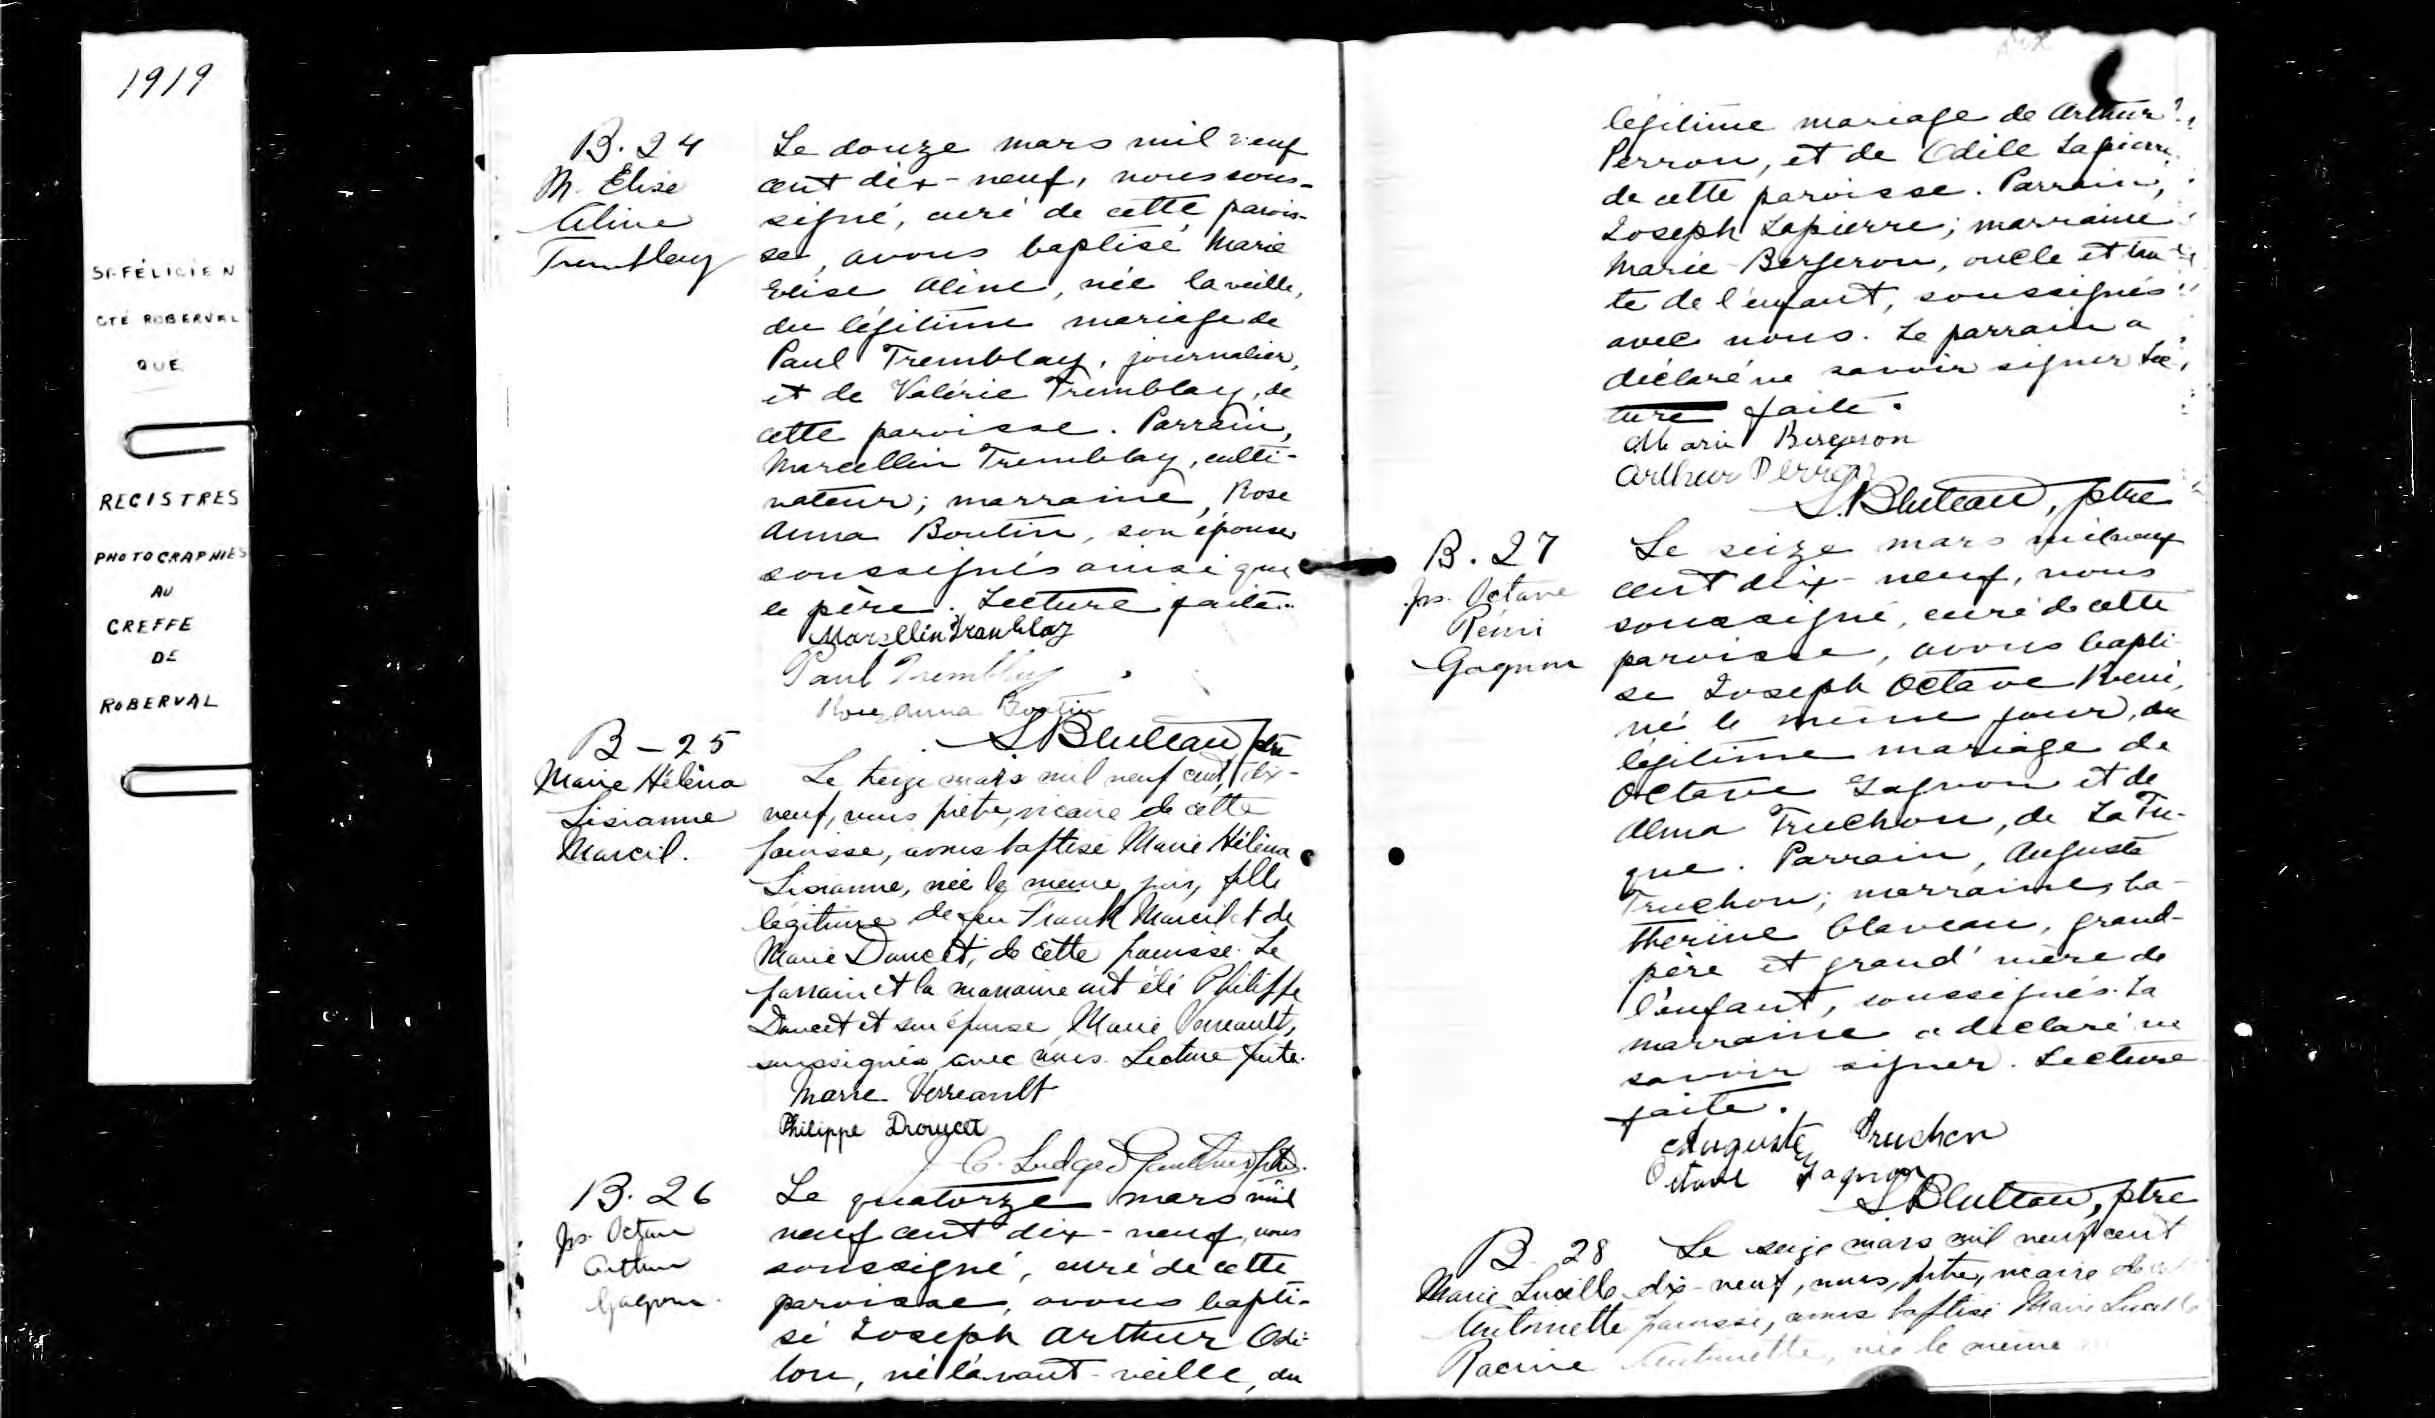 1919
ST-FÉLICIEN
CTÉ ROBERVAL
QUÉ
REGISTRES
PHOTOGRAPHIÉS
AU
GREFFE
DE
ROBERVAL
B. 24
M. Elise
Aline
Tremblay
Le douze mars mil neuf
cent dix-neuf, nous sous-
signé, curé de cette parois-
se, avons baptisé Marie
Elise Aline, née la veille,
du légitime mariage de
Paul Tremblay, journalier,
et de Valérie Tremblay, de
cette paroisse. Parrain,
Marcellin Tremblay, culti-
vateur; marraine, Rose
Anna Boutin, son épouse
soussignés ainsi que
le père. Lecture faite.
Marsellin Tramblay
Paul Tremblay
Rose Anna Boutin
L Bluteau, ptre
B-25
Marie Héléna
Lisianne
Marcil.
Le treize mars mil neuf cent dix-
neuf, nous prêtre, vicaire de cette
paroisse, avons baptisé Marie Héléna
Lisianne, née le même jour, fille
légitime de feu Frank Marcil et de
Marie Doucet, de cette paroisse. Le
parrain et la marraine ont été Philippe
Doucet et son épouse Marie Verreault,
soussignés avec nous. Lecture faite.
Marie Verreault
Philippe Doucet
J. C. Ludger Gauthier ptre.
B. 26
Jos. Octave
Arthur
Gagnon.
Le quatorze mars mil
neuf cent dix-neuf, nous
soussigné, curé de cette
paroisse, avons bapti-
sé Joseph Arthur Odi-
lon, né l'avant-veille, du
légitime mariage de Arthur
Perron, et de Odile Lapierre
de cette paroisse. Parrain,
Joseph Lapierre; marraine
Marie Bergeron, oncle et tan
te de l'enfant, soussignés
avec nous. Le parrain a
déclaré ne savoir signer Lec
ture faite.
Marie Bergeron
Arthur Perron
L. Bluteau, ptre
B. 27
Jos. Octave
Rémi
Gagnon
Le seize mars mil neuf
cent dix-neuf, nous
soussigné, curé de cette
paroisse, avons bapti-
sé Joseph Octave Rémi,
né le même jour, du
légitime mariage de
Octave Gagnon et de
Alma Truchon, de La Tu-
que. Parrain, Auguste
Truchon; marraine, Ca-
therine Claveau, grand-
père et grand'mère de
l'enfant, soussignés. La
marraine a déclaré ne
savoir signer. Lecture
faite.
Auguste Truchon
Octave Gagnon
L Bluteau, ptre
B. 28
Marie Lucille
Antoinette
Racine
Le seize mars mil neuf cent
dix-neuf, nous, ptre, vicaire de
paroisse, avons baptisé Marie Lucille
Antoinette, née le même